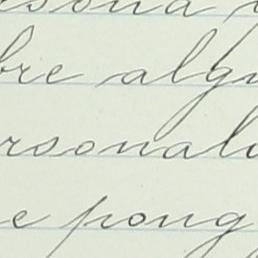 sona
bre algu
rsonali
e pong